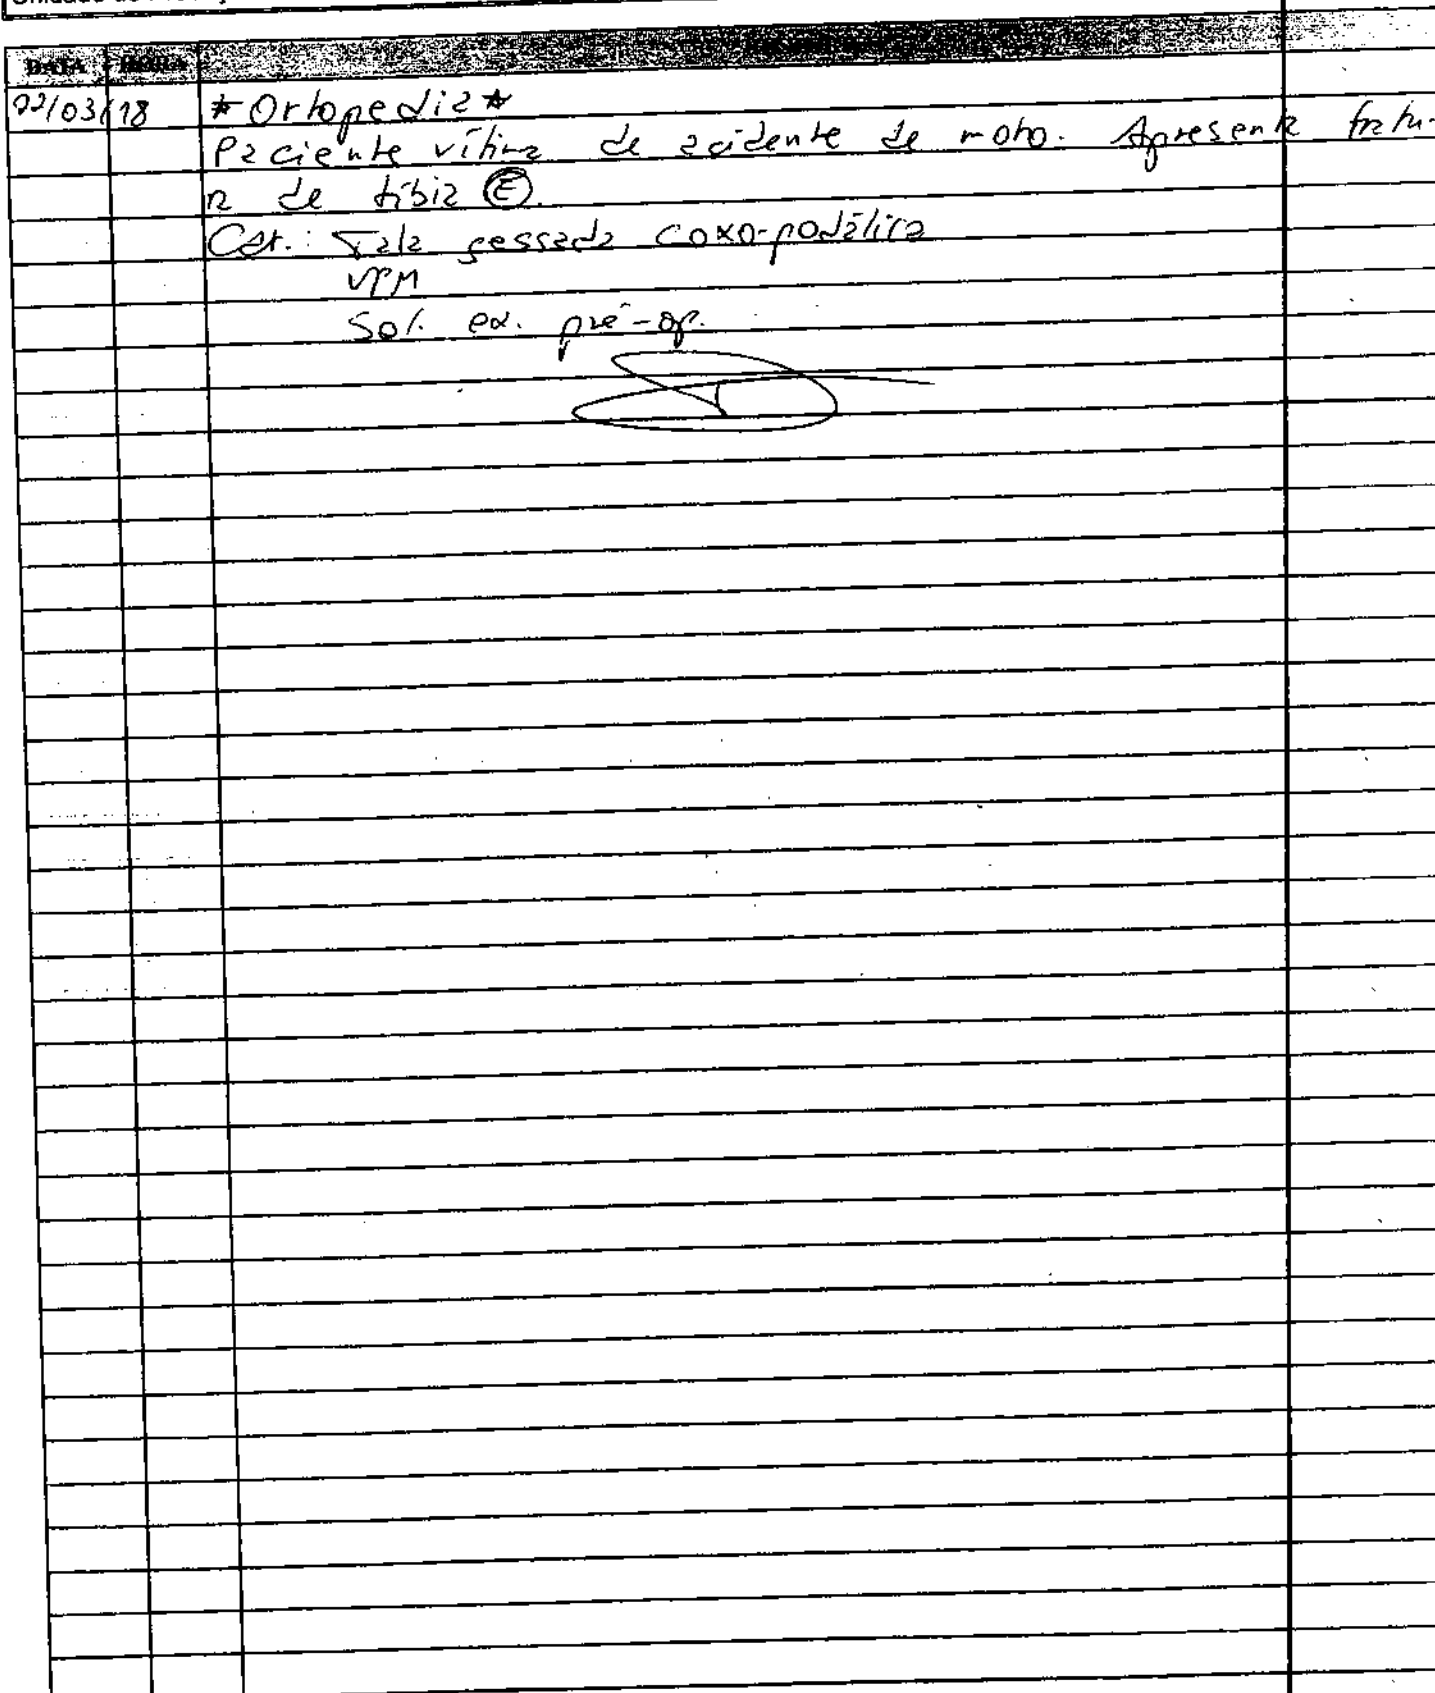 DATA HORA
02/03/18 *Ortopedia*
Paciente vítima de acidente de moto. Apresenta fratu-
ra de tíbia (E).
Cdt.: Tala gessada coxo-podálica
VPM
Sol. ex. pré-op.